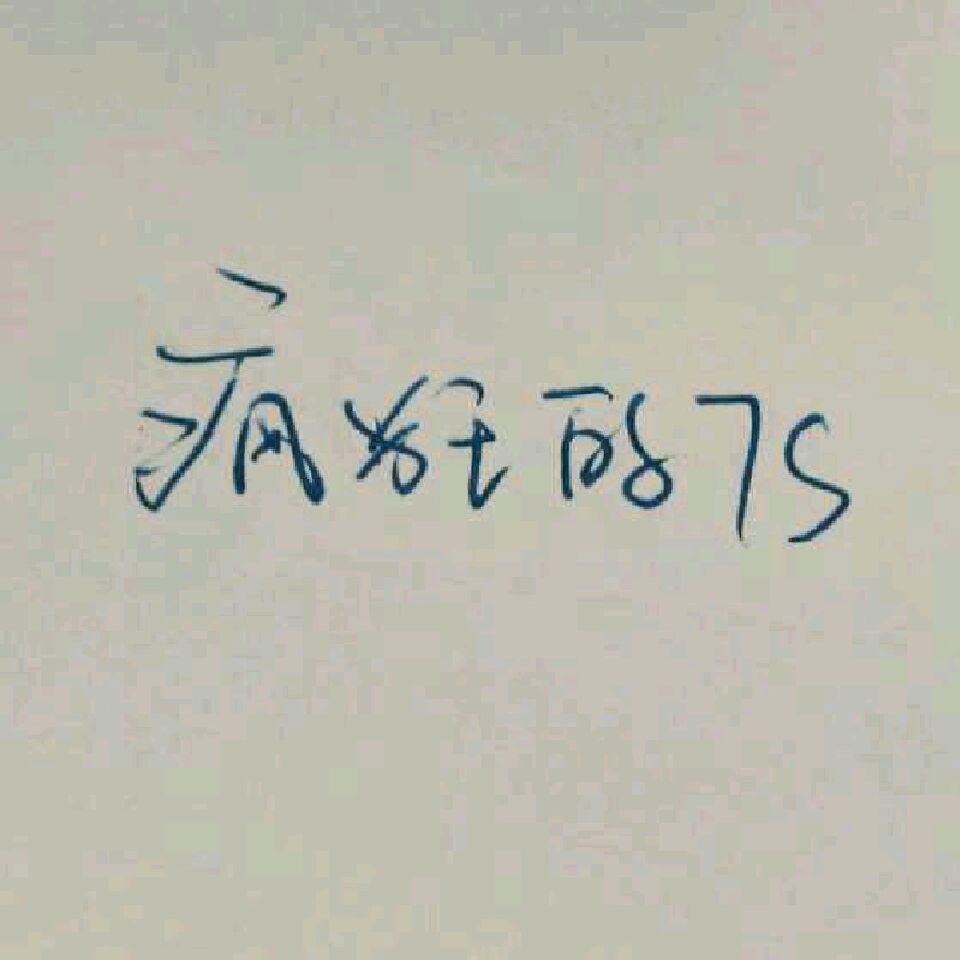 疯狂的7S